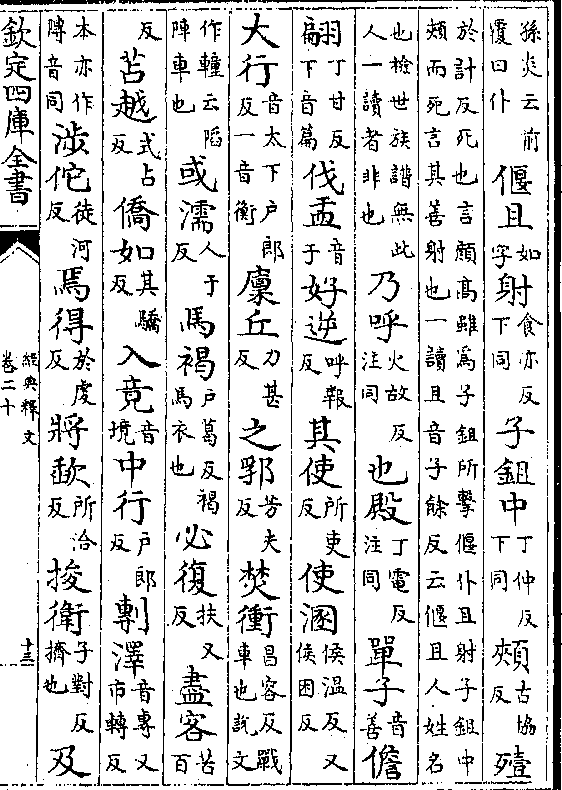 孫炎云前覆曰仆偃且如字射食亦反下同子鉏中丁仲反下同頰古協反殪
於計反死也言顔高雖爲子鉏所擊偃仆且射子鉏中頰而死言其善射也一讀且音子餘反云偃且人姓名
也檢世族譜無此人一讀者非也乃呼火故反注同也殿丁電反注同單子音善儋
翩丁甘反下音篇伐盂音于好逆呼報反其使所吏反使溷侯温反又侯困反
大行音太下户郎反一音衡廩丘力甚反之郛芳夫反焚衝昌容反戰車也說文
作䡴云陷陣車也或濡人于反馬褐户葛反褐馬衣也必復扶又反盡客苦百
反苫越式占反僑如其驕反入竟音境中行户郎反剸澤音專又市轉反
本亦作音同涉佗徒河反焉得於虔反將歃所洽反捘衛子對反擠也及
欽定四庫全書
經典釋文
卷二十
十三